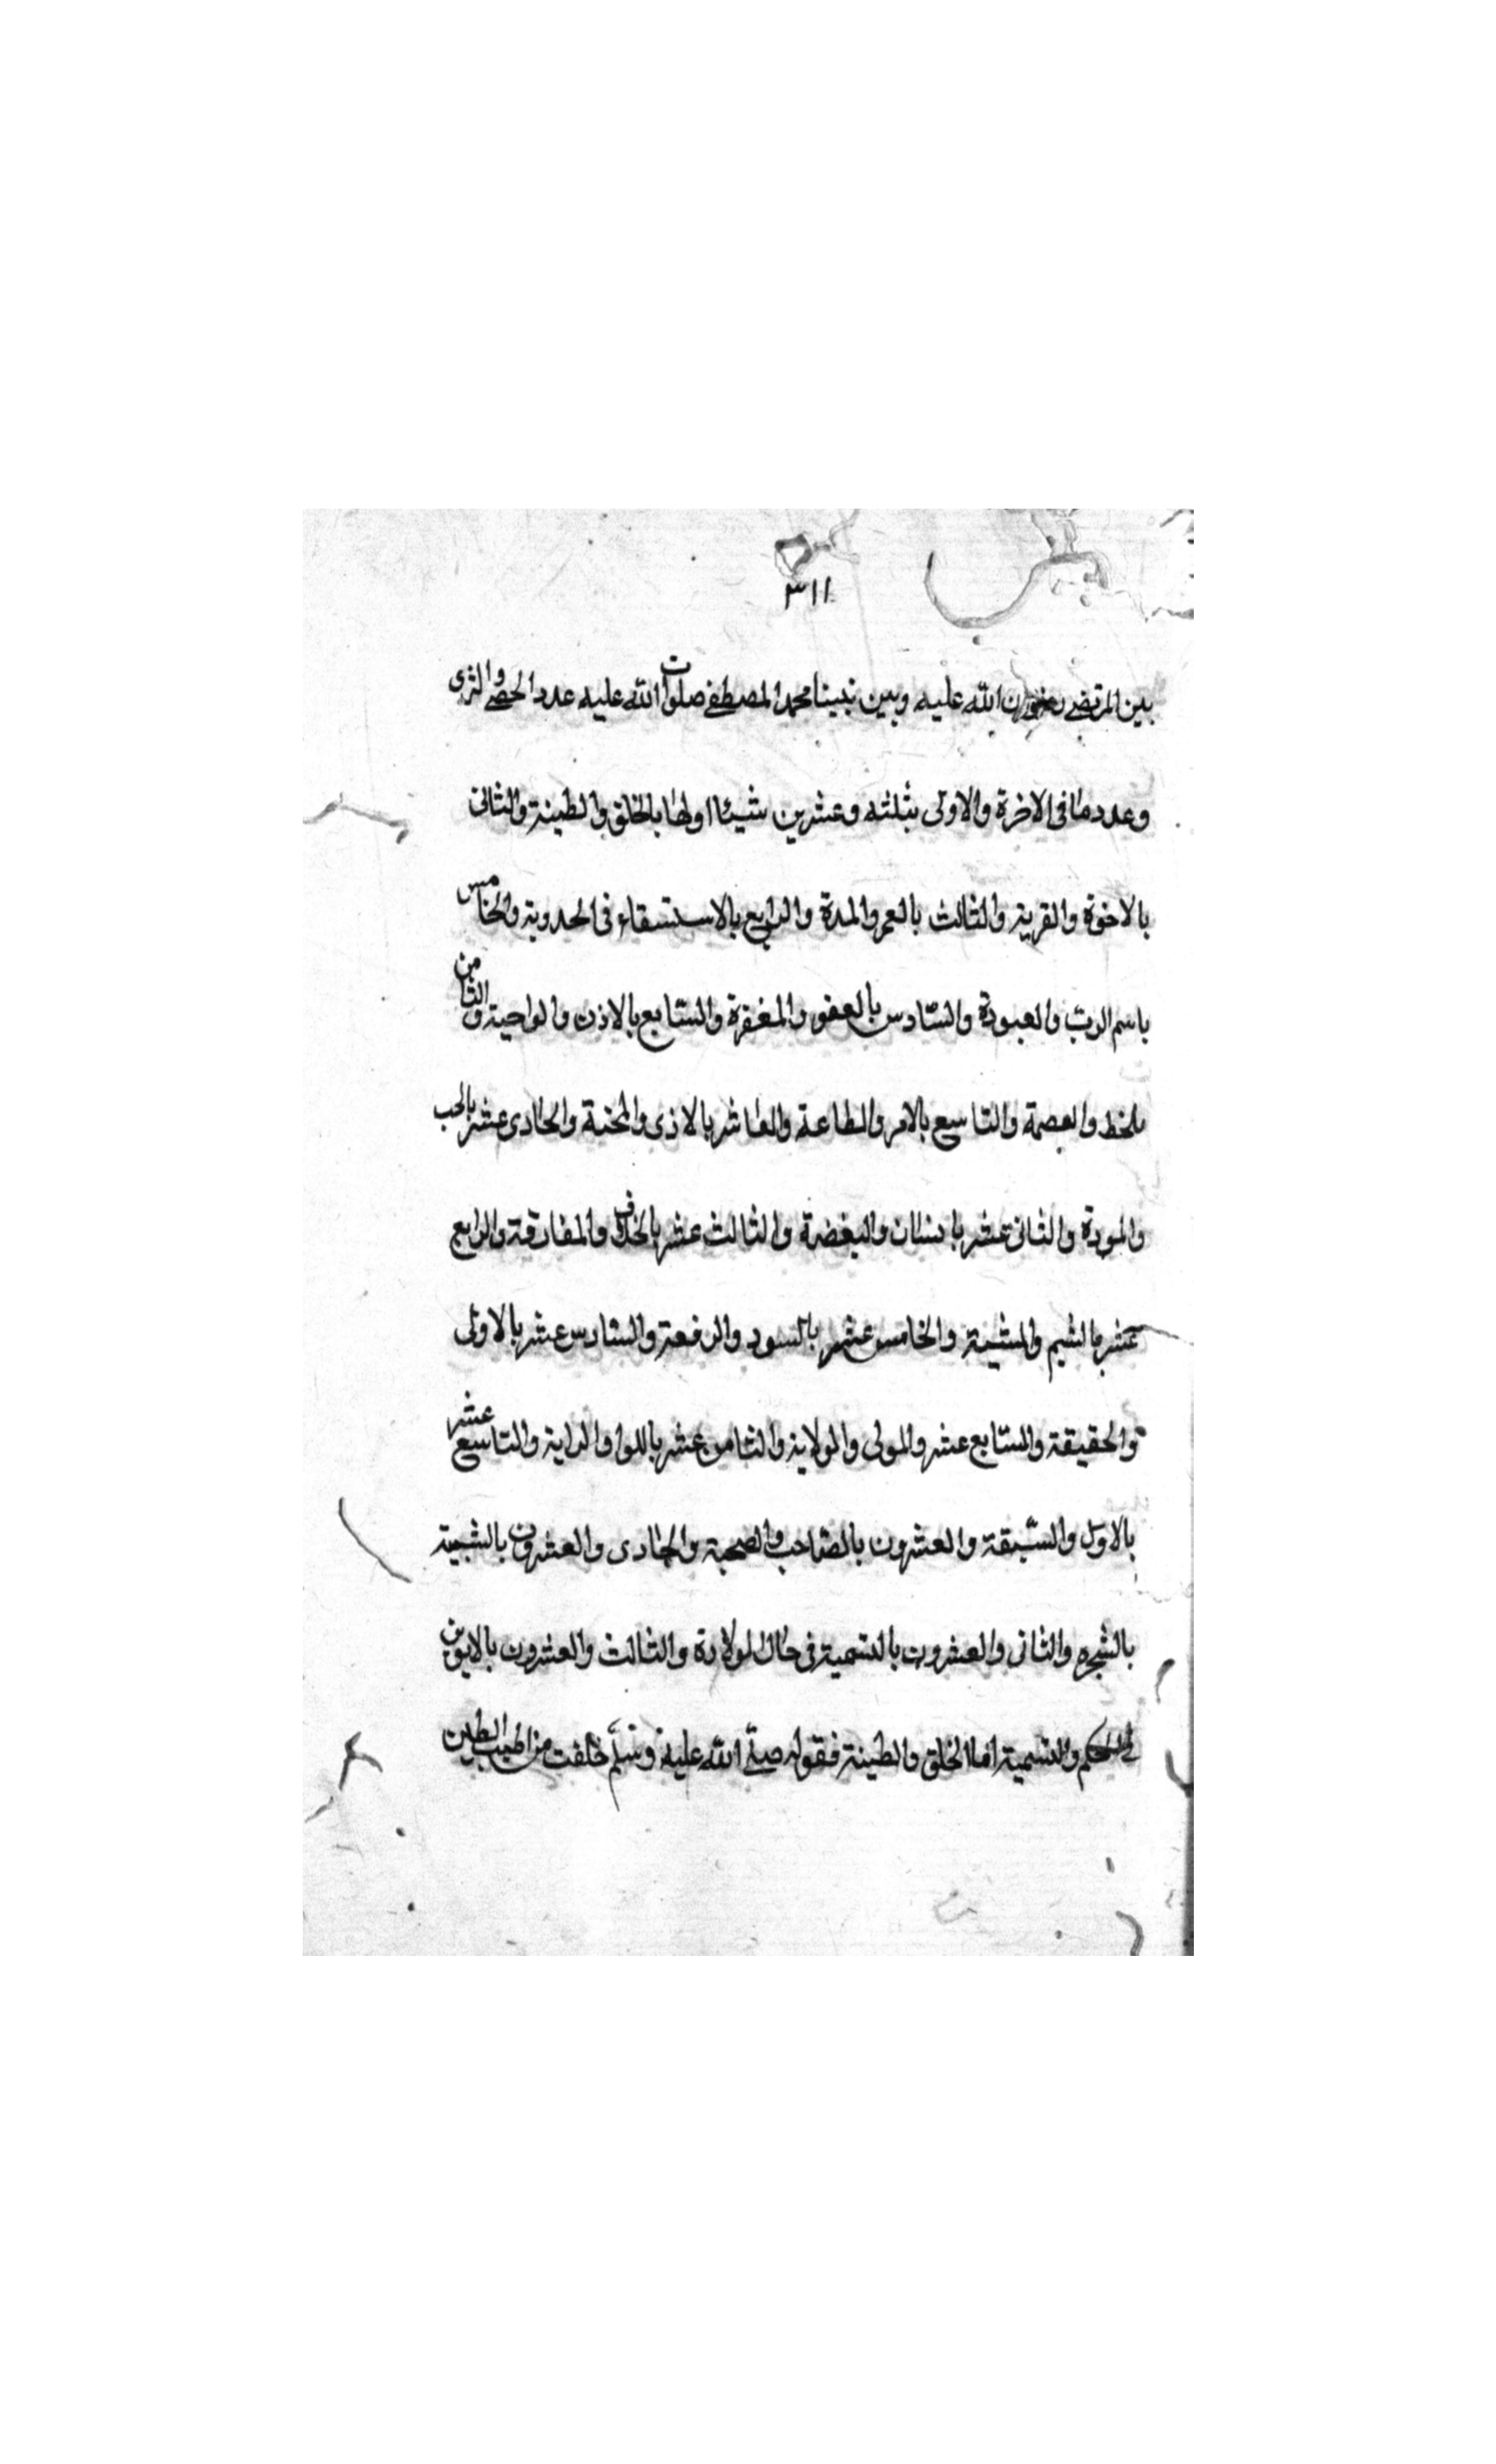 ٣١١
بين المرتضى رضوان الله عليه وبين نبينا محمد المصطفى صلوات الله عليه عدد الحصى والثرى
وعدد ما في الاخرة والاولى بثلثه وعشرين شيئا اولها بالخلق والطينة والثانى
بالاخوة والقرية والثالث بالعمر والمدة والرابع بالاستسقاء فى الحدوبة والخامس
باسم الرب والعبودة والسادس بالعفو والمغفرة والسابع بالاذن والواحية والثامن
بلخط والعصمة والتاسع بالامر والطاعة والعاشر بالاذى والمحنة والحادى عشر بالحب
والمودة والثانى عشر با والبغضة والثالث عشر بالخلاف والمفارقة والرابع
عشر بالشيم والمشيئة والخامس عشر بالسود والرفعة والسادس عشر بالاولى
والحقيقة والسابع عشر والمولى والمولاية والثامن عشر باللوا والراية والتاسع عشر
بالاول والسبقة والعشرون بالصاحب والصحبة والحادى والعشرون بالشبية
بالشجره والثانى والعشرون بالتسمية فى حال المولادة والثالث والعشرون بالابوين
والتسمية اما الخلق والطينة فقوله صلى الله عليه وسلم خلقت من اطيب الطين